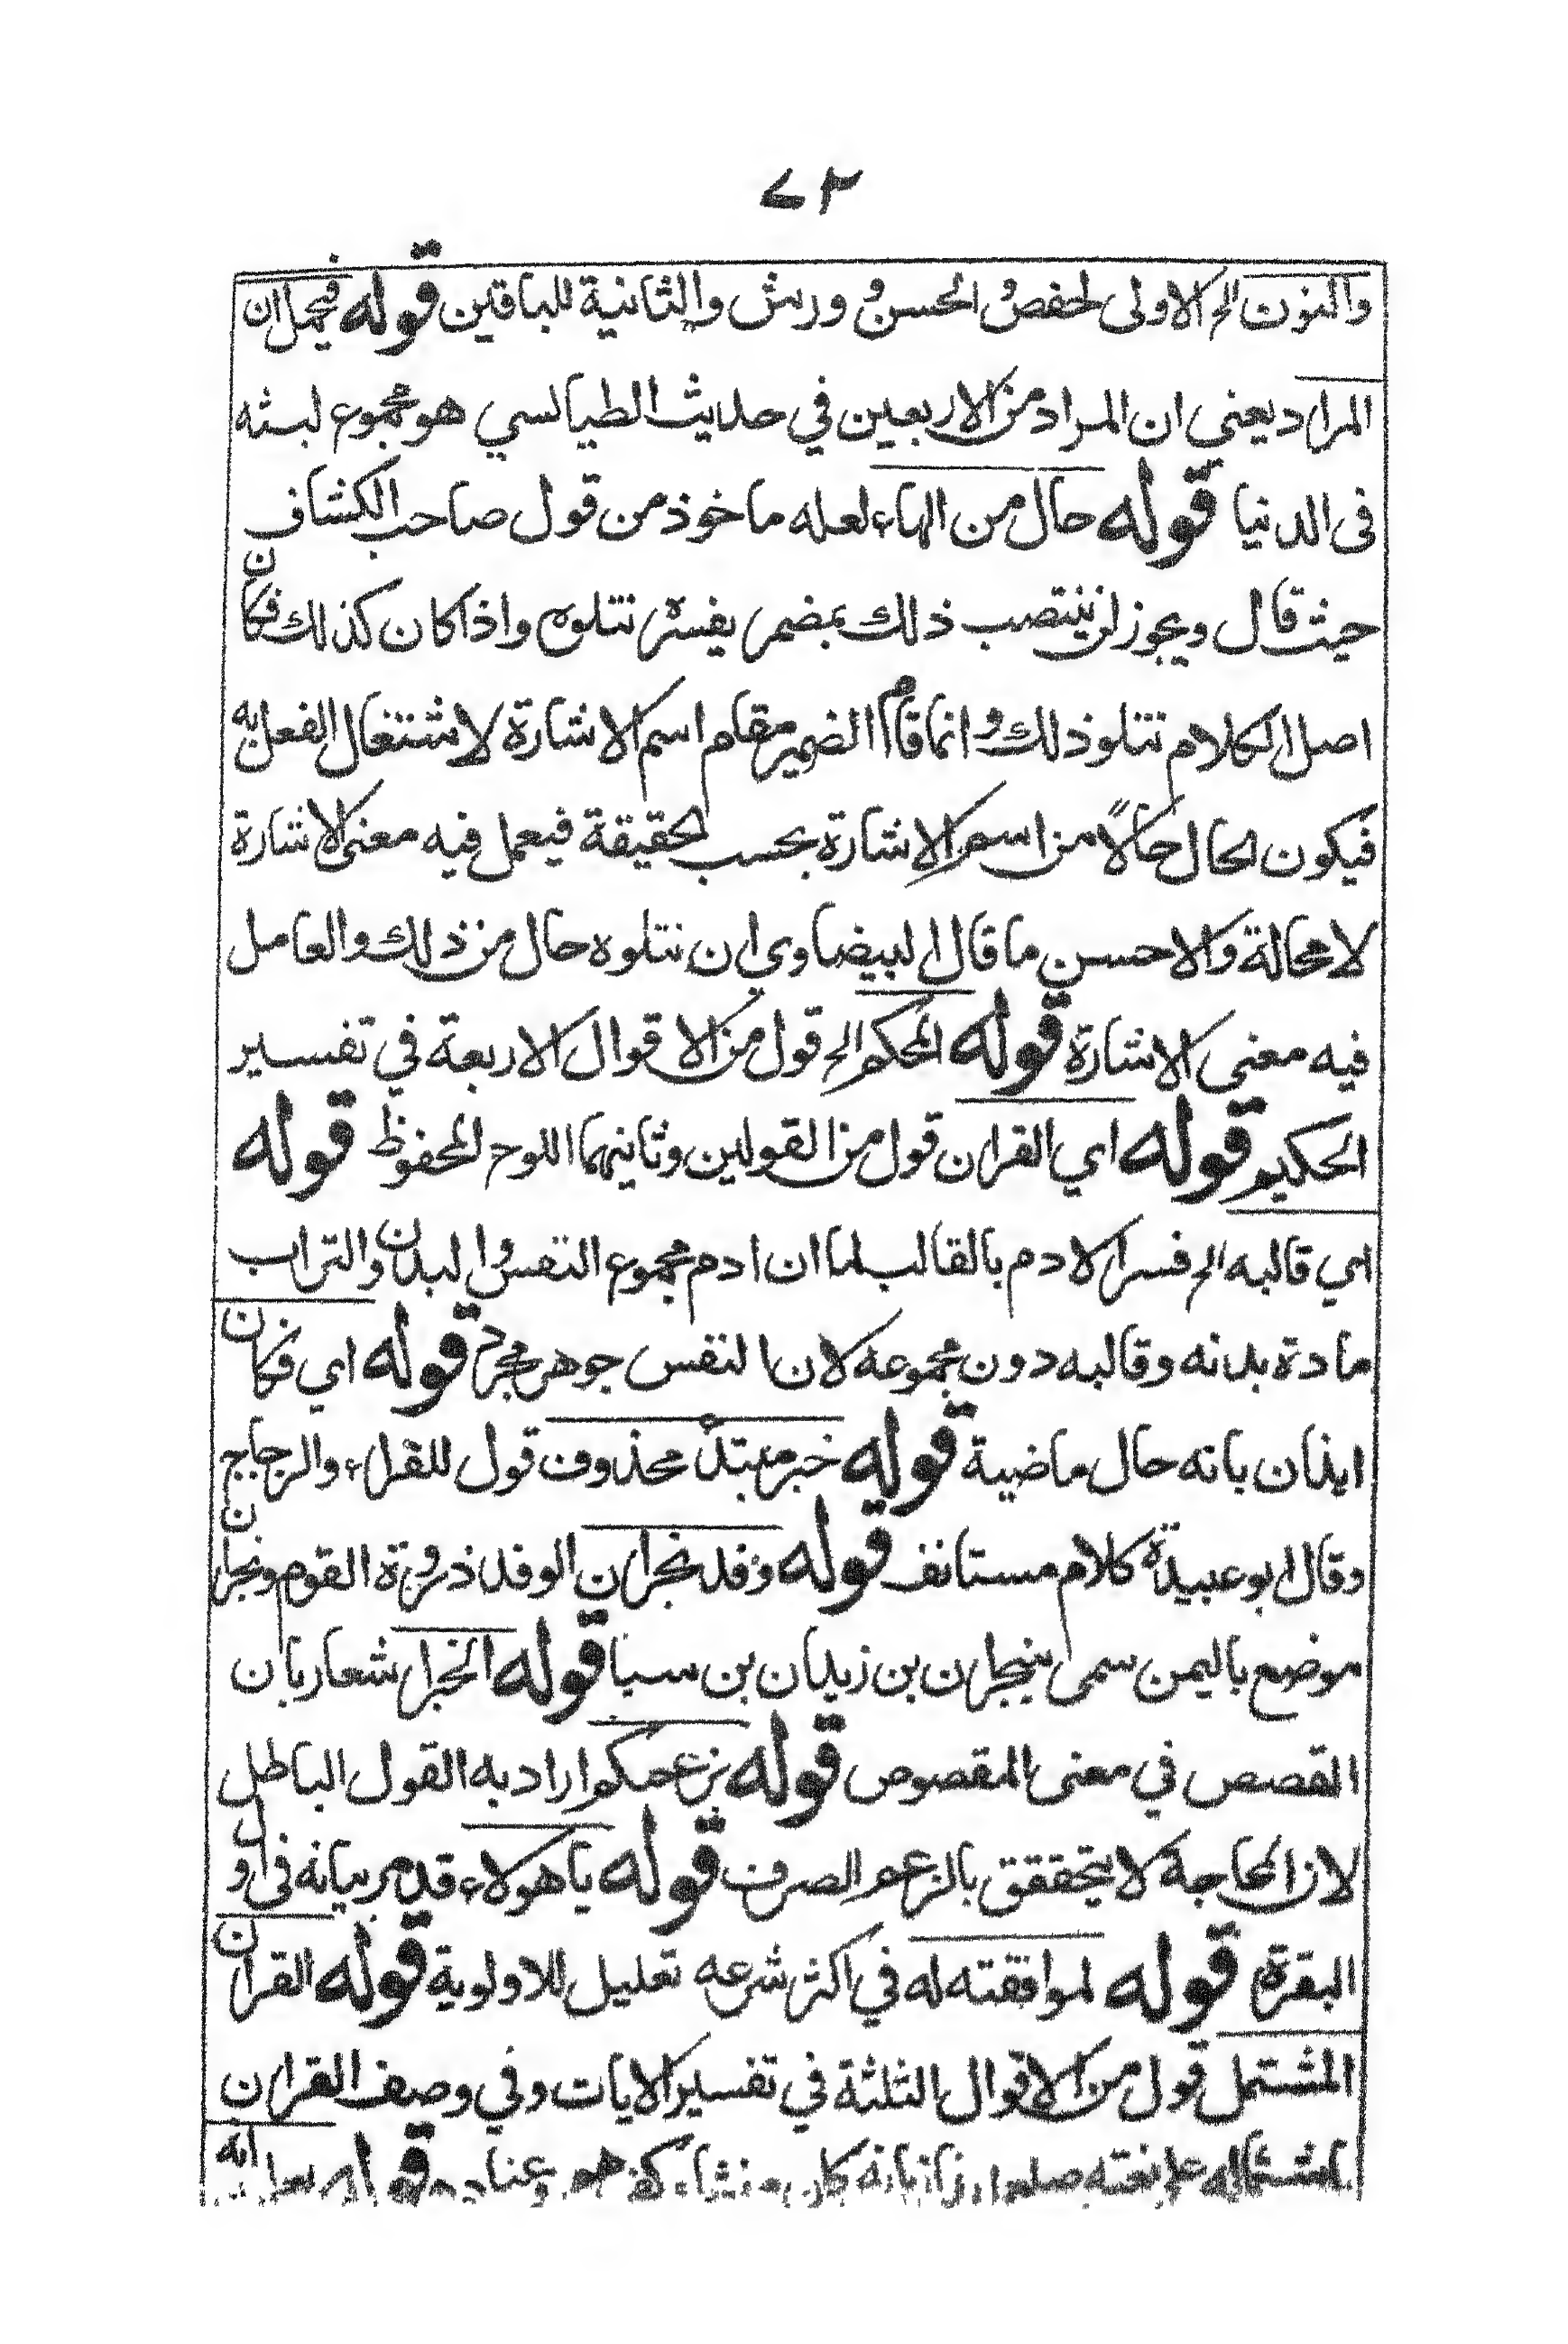 ٧٣
والنون الخ الاولى لحفص والحسن و ورش والثانية للباقين قوله فيحمل ان
المراد يعني ان المراد من الاربعين في حديث الطيالسي هو مجموع لبثه
فى الدنيا قوله حال من الهاء لعله ماخوذ من قول صاحب الكشاف
حيث قال ويجوز ان ينتصب ذلك بمضمر يفسره نتلوه واذا كان كذلك فكان
اصل الكلام نتلو ذلك و انما قام الضمير مقام اسم الاشارة لاشتغال الفعل به
فيكون الحال حالاً من اسم الاشارة بحسب الحقيقة فيعمل فيه معنى الاشارة
لا محالة والاحسن ما قال البيضاوي ان نتلوه حال من ذلك والعامل
فيه معنى الاشارة قوله المحكم الخ قول من الاقوال الاربعة في تفسير
الحكيم قوله اي القران قول من القولين وثانيهما اللوح المحفوظ قوله
اي قالبه الخ فسر الادم بالقالب لما ان ادم مجموع النفس والبدن والتراب
مادة بدنه وقالبه دون مجموعه لان النفس جوهر مجرد قوله اي فكان
ايذان بانه حال ماضية قوله خبر مبتدأ محذوف قول للفراء والزجاج
وقال ابو عبيدة كلام مستانف قوله وفد نجران الوفد ذروة القوم ونجران
موضع باليمن سمى بنجران بن زيدان بن سبا قوله الخبر اشعار بان
القصص في معنى المقصوص قوله بزعمكم اراد به القول الباطل
لان المحاجة لا يتحقق بالزعم الصرف قوله يا هولاء قد مر بيانه فى اول
البقرة قوله لموافقته له في اكثر شرعه تعليل للاولوية قوله القران
المشتمل قول من الاقوال الثلثة في تفسير الايات وفي وصف القران
باشتماله على نعته صلعم